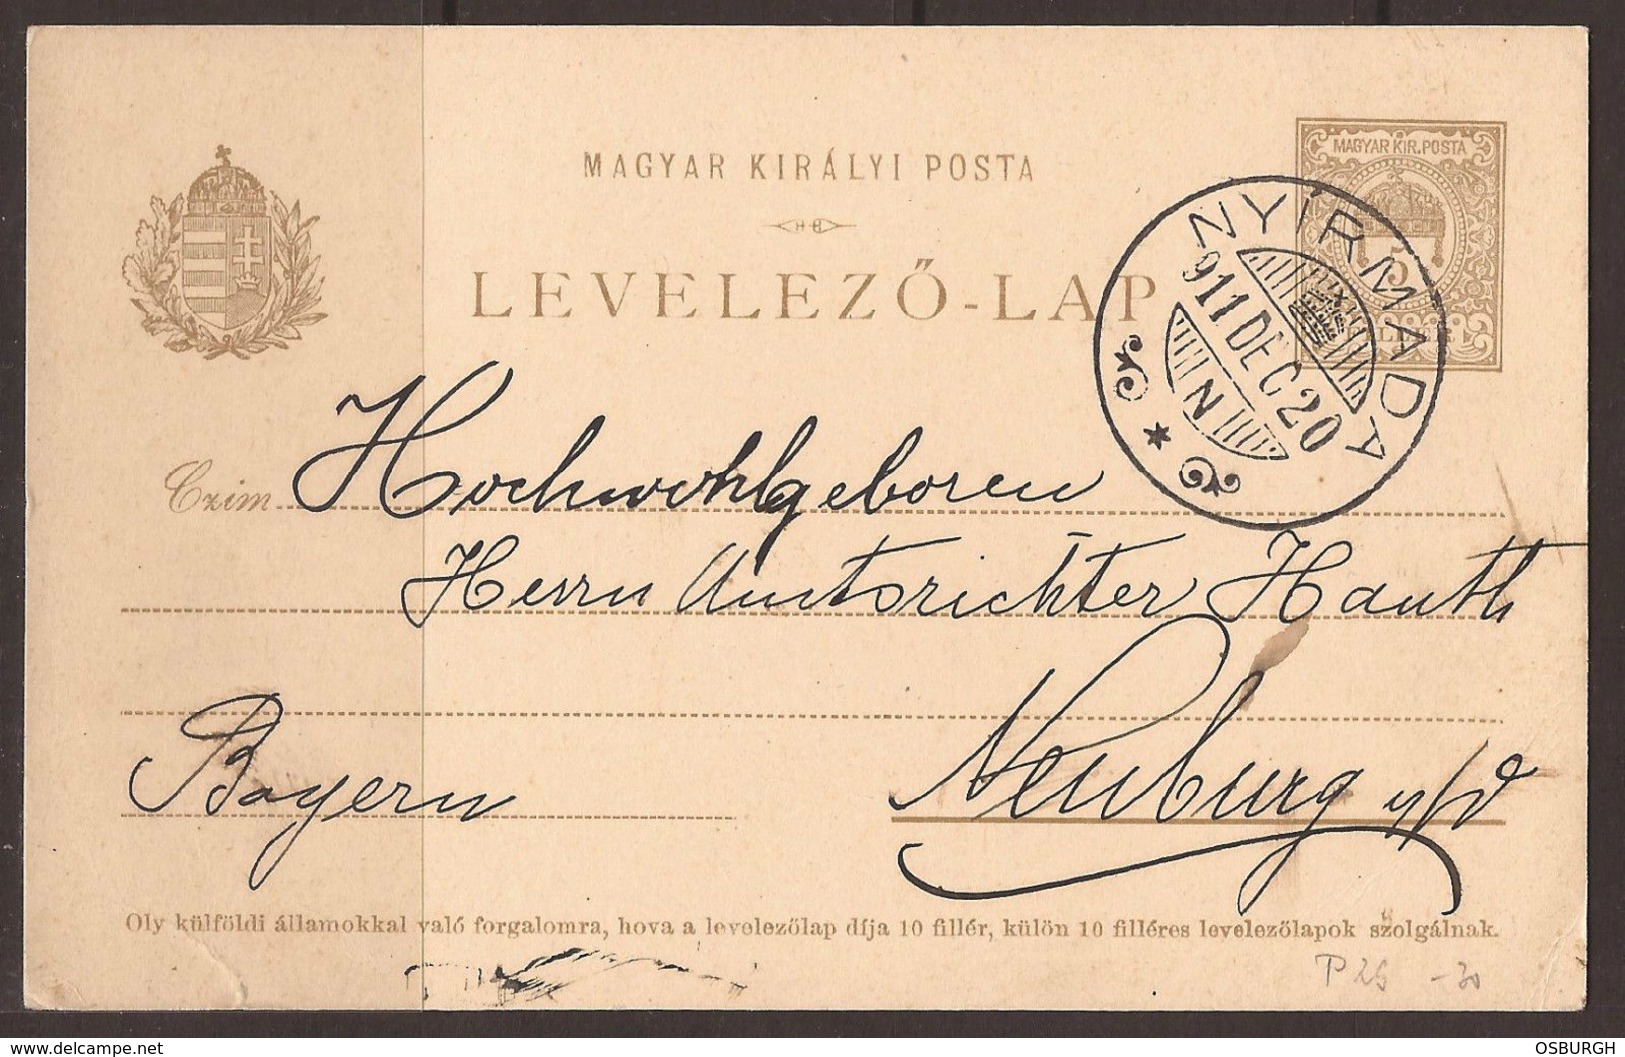 MAGYAR KIRÁLYI POSTA
LEVELEZŐ-LAP
MAGYAR KIR. POSTA
NYÍRMADA
911 DEC 20
N
Czim Hochwohlgeboren
Herrn Amtsrichter Hauth
Neuburg a/d
Bayern
Oly külföldi államokkal való forgalomra, hova a levelezőlap díja 10 fillér, külön 10 filléres levelezőlapok szolgálnak.
P 25 -30
www.delcampe.net
OSBURGH